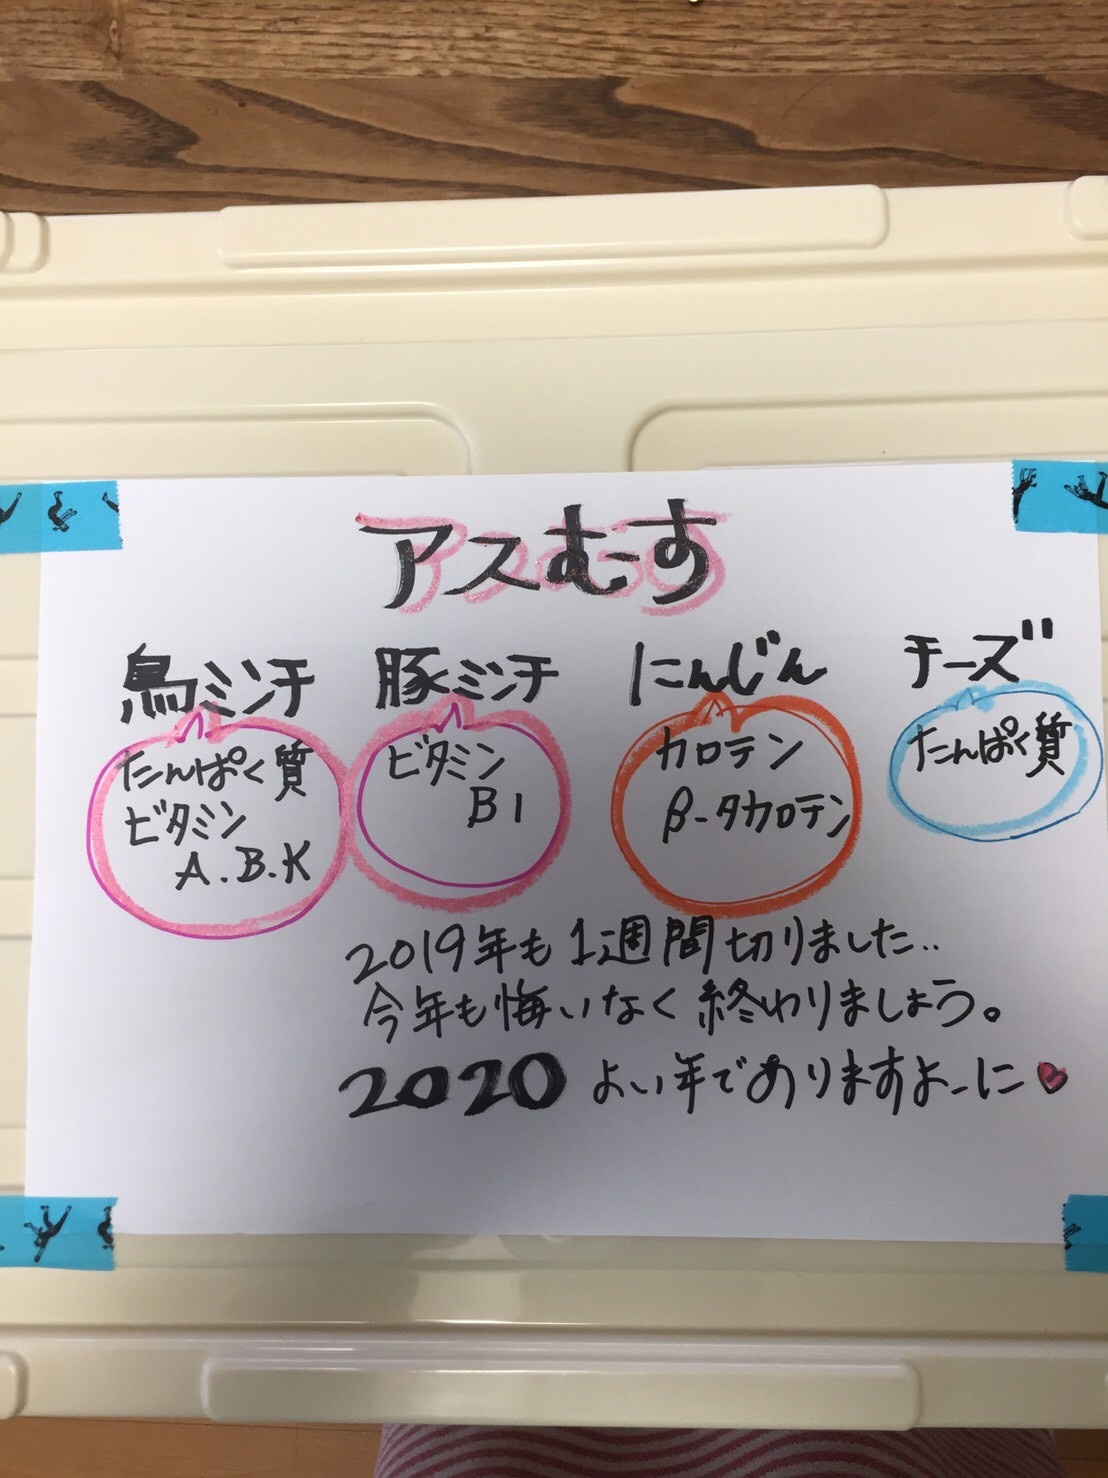 アスむーす
鳥ミンチ
たんぱく質
ビタミン
A.B.K
豚ミンチ
ビタミン
B1
にんじん
カロテン
β-タカロテン
チーズ
たんぱく質
2019年も1週間切りました..
今年も悔いなく終わりましょう。
2020 よい年でありますよーに